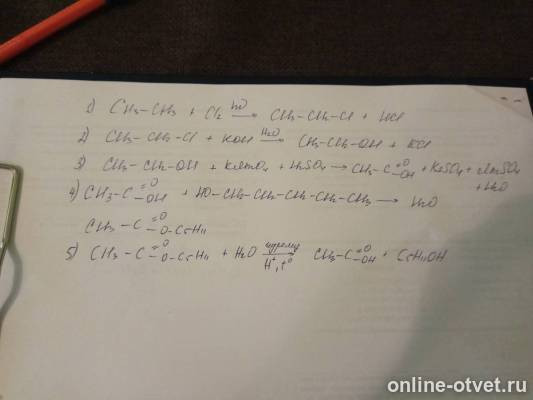 1) CH3-CH3 + Cl2 hν → CH3-CH2-Cl + HCl
2) CH3-CH2-Cl + KOH H2O → CH3-CH2-OH + KCl
3) CH3-CH2-OH + KMnO4 + H2SO4 → CH3-C =O OH + K2SO4 + MnSO4 + H2O
4) CH3-C =O OH + HO-CH2-CH2-CH2-CH2-CH3 → H2O
CH3-C =O O-C5H11
5) CH3-C =O O-C5H11 + H2O H+, t° ⇄ CH3-C =O OH + C5H11OH
online-otvet.ru